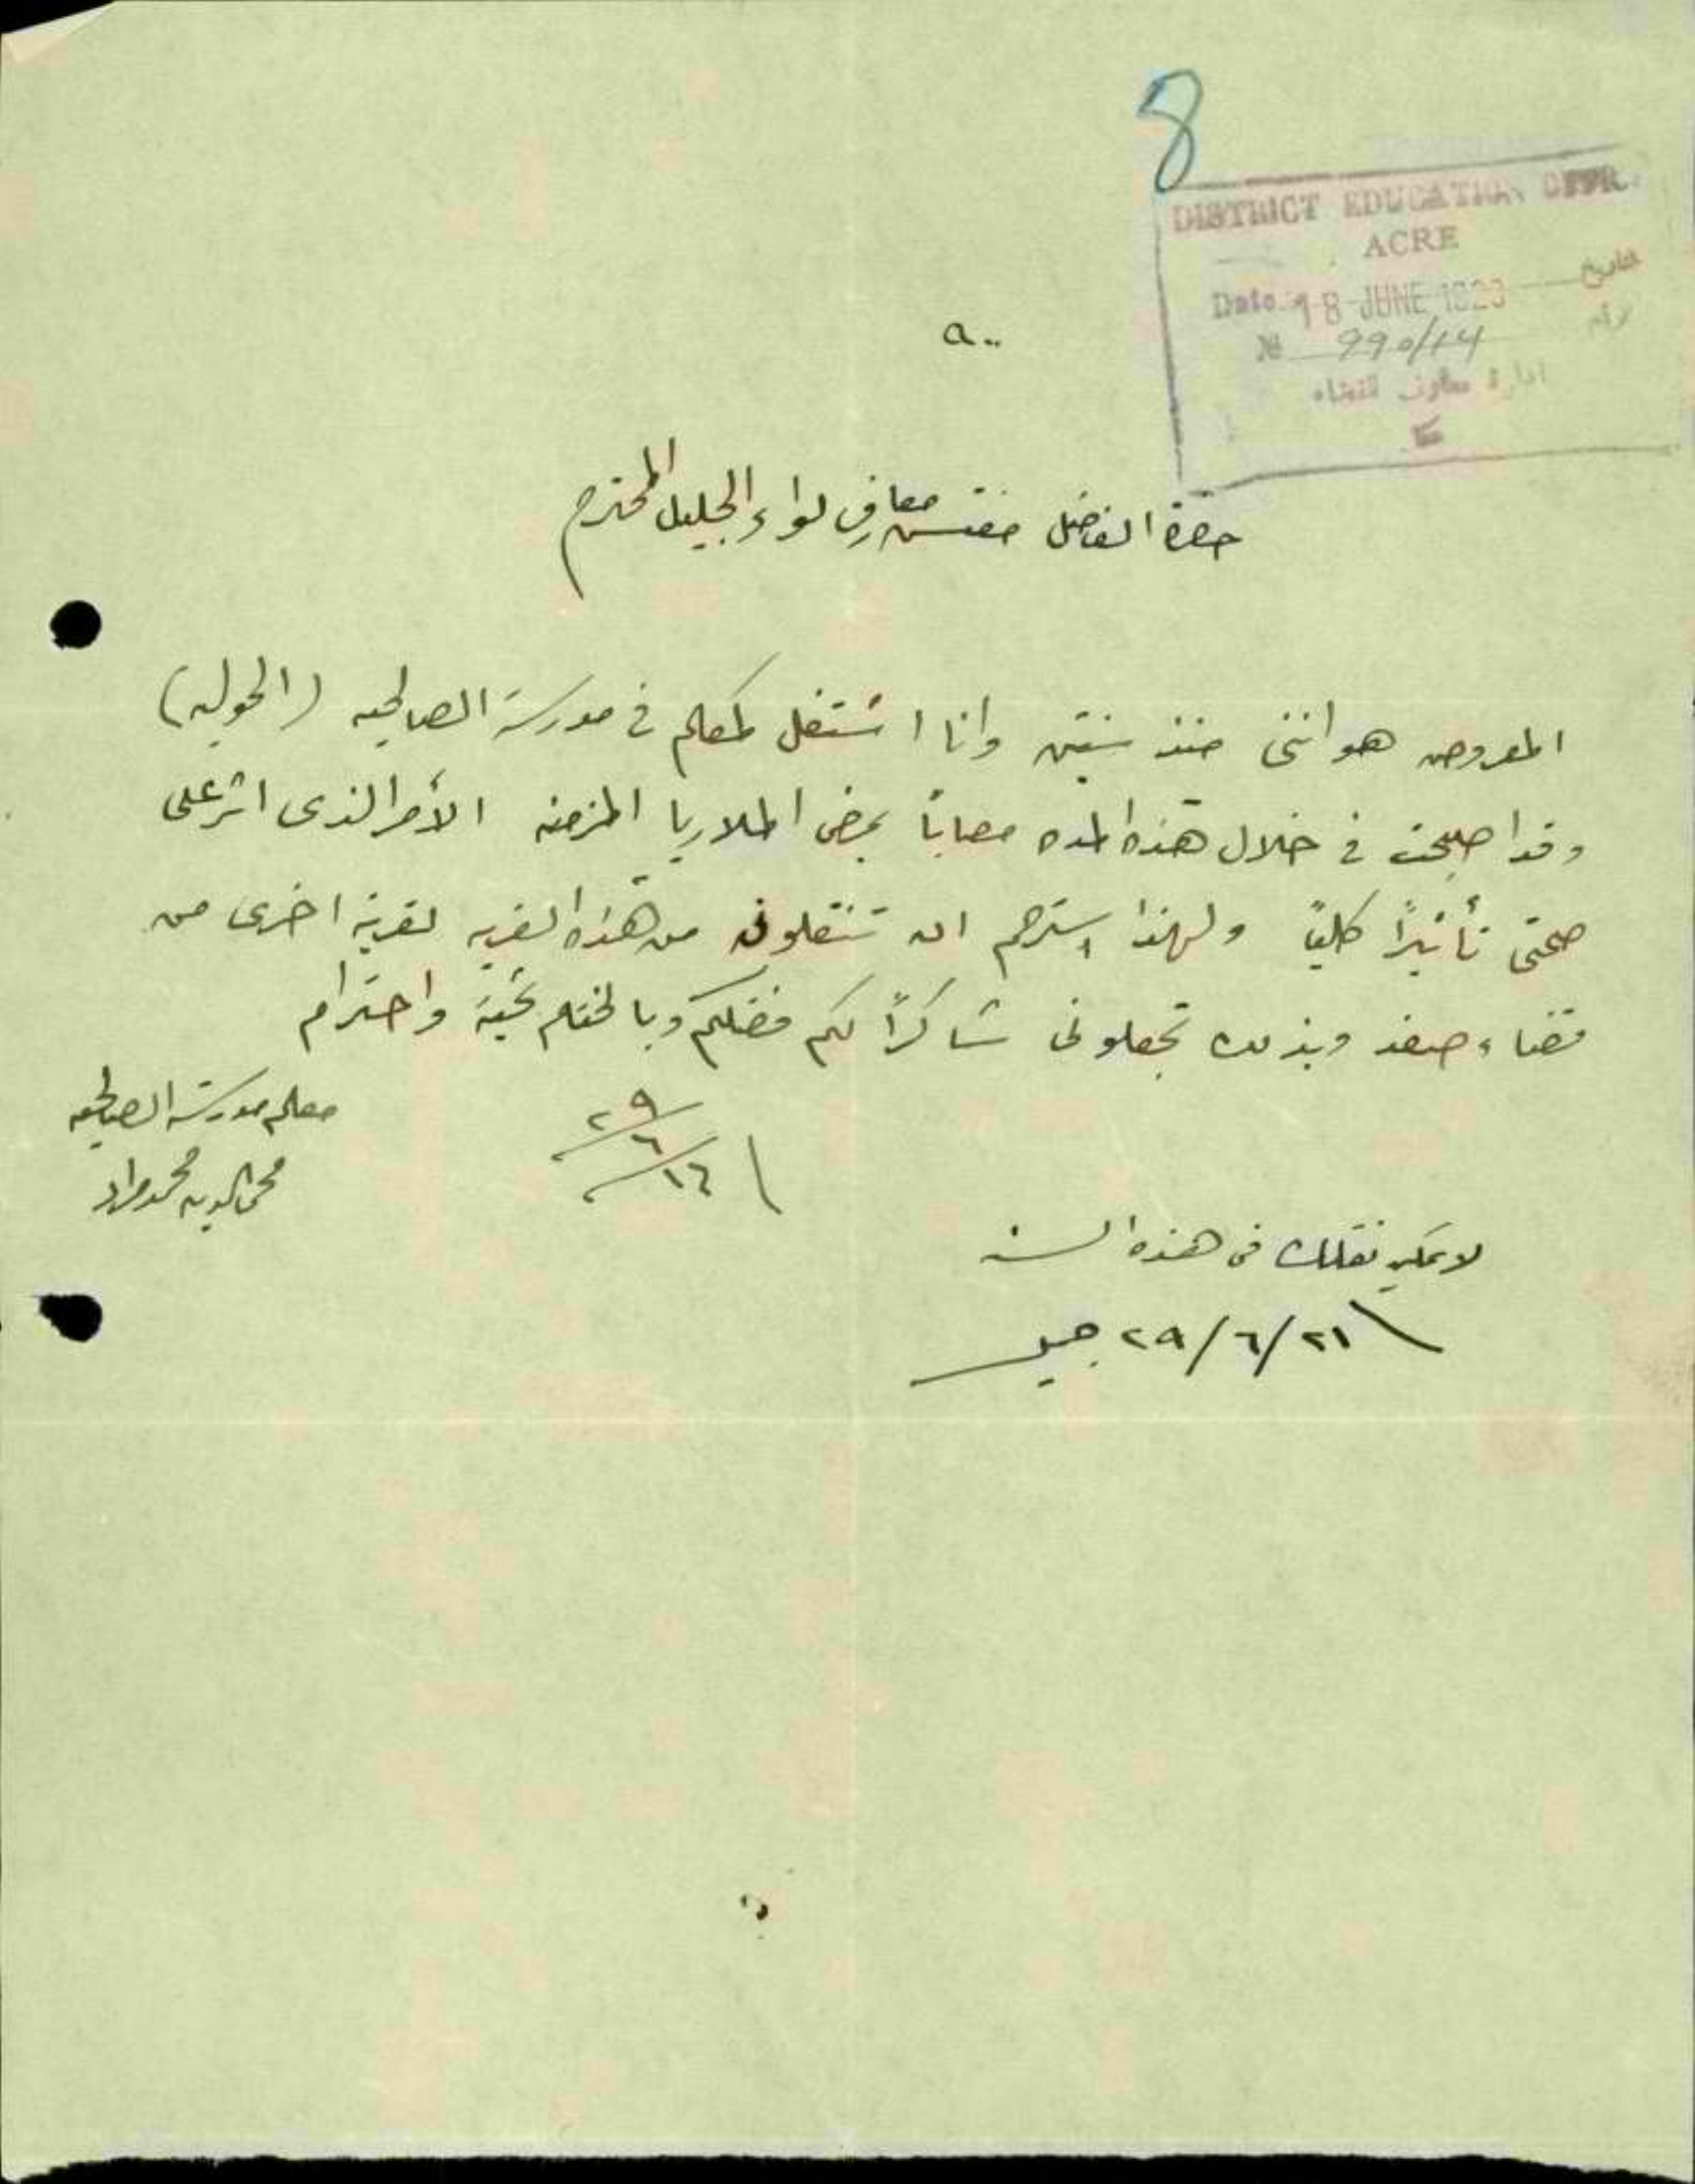 8
DISTRICT EDUCATION OFFR.
ACRE
Date 18 JUNE 1929 التاريخ
№ 990/14 رقم
ادارة معارف القضاء
عكا
حضرة الفاضل مفتش معارف لواء الجليل المحترم
المعروض هو انني منذ سنتين وانا اشتغل كمعلم في مدرسة الصالحيه (الحوله)
وقد اصبحت في خلال هذه المده مصاباً بمرض الملاريا المزمنه الأمر الذى اثر على
صحتى تأثيراً كلياً ولهذا استرحم ان تنقلونى من هذه القريه لقرية اخرى من
قضاء صفد وبذلك تجعلونى شاكراً لكم فضلكم وبالختام تحية واحترام
١٦/٦/٢٩
معلم مدرسة الصالحيه
محي الدين محمد مراد
لا يمكن نقلك فى هذه السنه
٢١/٦/٢٩ جميل